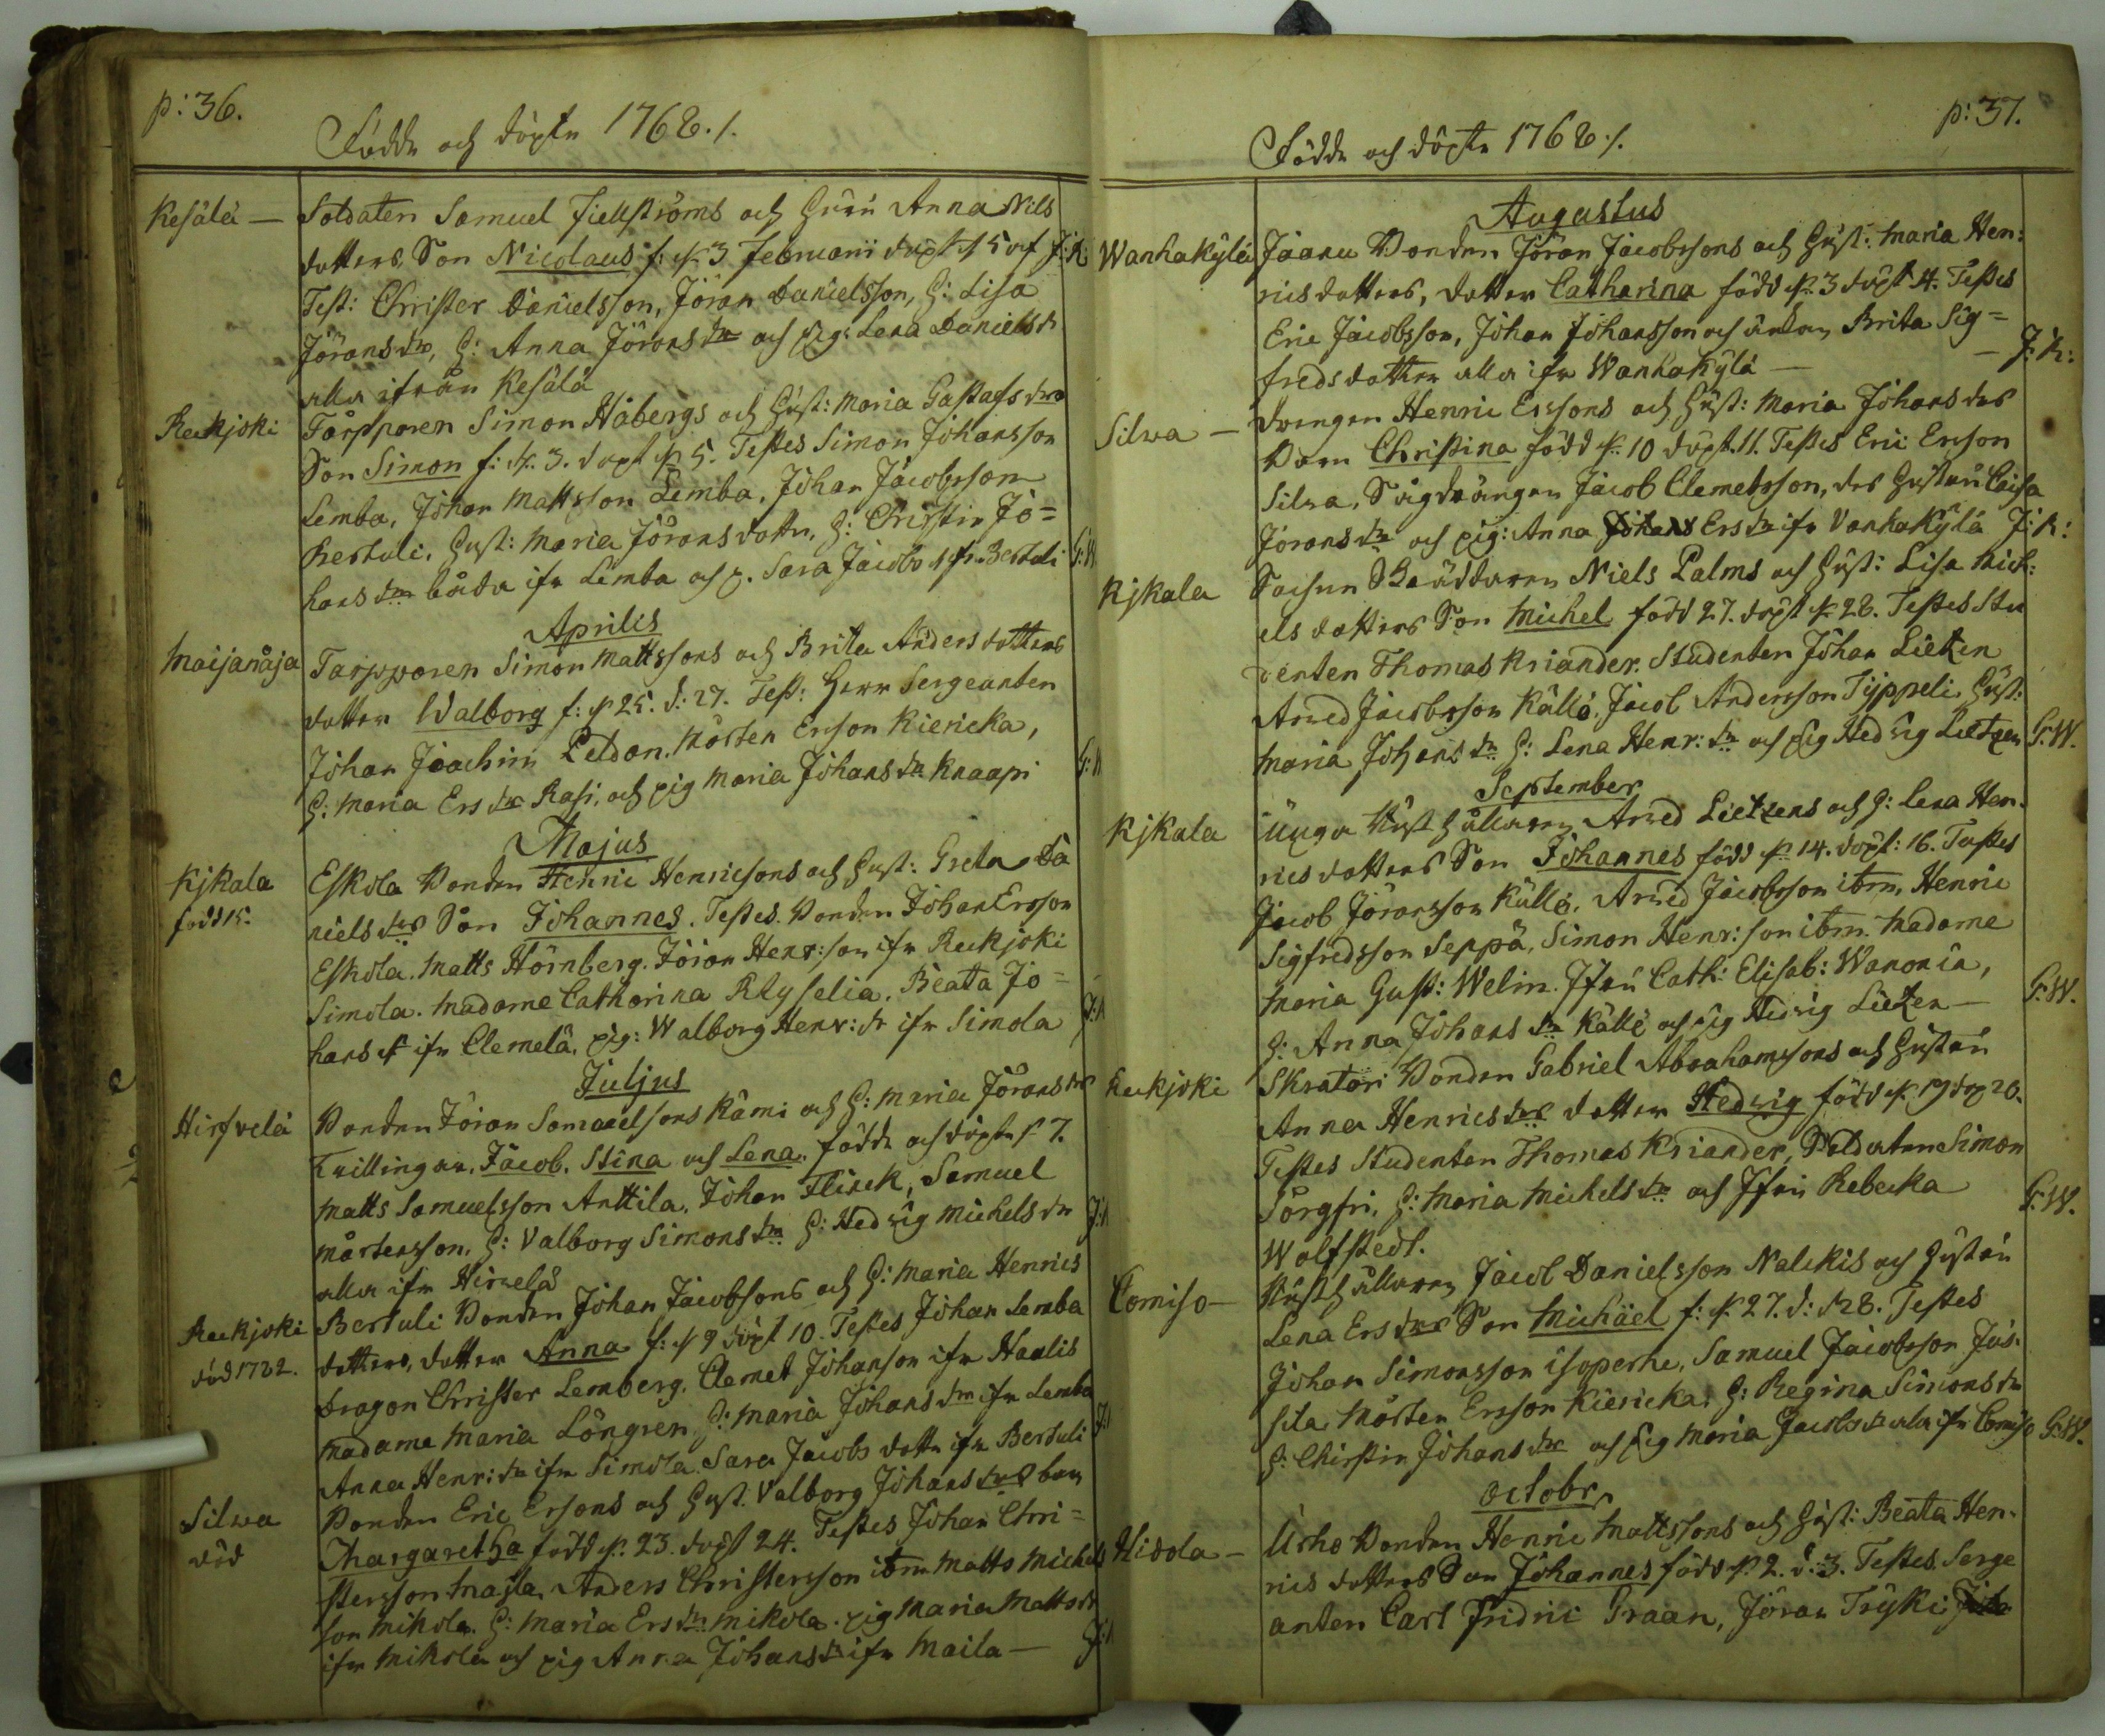 p: 36.
Födde och döpte 1768. /.
Kesälä — Soldaten Samuel Fiellströms och Hustru Anna Nils
dotters Son Nicolaus f: d. 3 Februarii döpt d 5 af J: K:
Test: Christer Danielsson, Jöran Danielsson, H: Lisa
Jörans dr, H: Anna Jörans dr och pig: Lena Daniels dr
alla ifrån Kesälä
Reckjoki Torpparen Simon Håbergs och Hust: Maria Gustafs drs
Son Simon f: d. 3. döpt d 5. Testes Simon Johansson
Lemba, Johan Mattsson Lemba, Johan Jacobsson
Bertuli, Hust: Maria Jörans dotter, H: Christin Jo=
hans dr båda ifr Lemba och p. Sara Jacobs d fr Bertuli G: W
Aprilis
Maijanåja Torpparen Simon Mattssons och Brita Anders dotters
dotter Walborg f: d 25. d: 27. Test: Herr Sergeanten
Johan Joachim Peldan. Mårten Erson Kiericka,
H: Maria Ers dr Rasi, och pig Maria Johans dr Knaapi
Majus
Kjkala Eskola Bonden Henric Henricsons och Hust: Greta Da
född 15. niels drs Son Johannes. Testes. Bonden Johan Ersson
Eskola. Matts Hörnberg. Jöran Henr: son ifr Reckjoki
Simola. Madame Catharina Rlyselia. Beata Jo=
hans d ifr Clemelä, pig: Walborg Henr: dr ifr Simola
Juljus
Hirsvelä Bonden Jöran Samuelsons Kämi och H: Maria Jörans drs
Trillingar, Jacob, Stina och Lena, födde och döpte d 7.
Matts Samuelsson Anttila, Johan Flinck, Samuel
Mårtensson, H: Valborg Simons dr H: Hedvig Michels dr
alla ifr Hirvelä
Reckjoki Bertuli Bonden Johan Jacobsons och H: Maria Henrics
död 1782. dotters, dotter Anna f: d 9 döpt 10. Testes Johan Lemba
Dragon Christer Lemberg, Clemet Johanson ifr Haalis
Madame Maria Löngren, H: Maria Johans dr ifr Lemba
Anna Henr: dr ifr Simola. Sara Jacobs dotter ifr Bertuli
Silwa Bonden Eric Ersons och Hust. Valborg Johans drs barn
död Margaretha född d. 23. döpt 24. Testes Johan Chri=
stersson Majla, Anders Christersson ibm Matts Michels
son Mikola. H: Maria Ers dr Mikola. pig Maria Matts dr
ifr Mikola och pig Anna Johans dr ifr Maila —
p: 37.
Födde och döpte 1768 /.
Augustus
Wanhakÿlä Jaanu Bonden Jöran Jacobssons och Hust: Maria Hen:
rics dotters, dotter Catharina född d. 3 döpt 4. Testes
Eric Jacobsson, Johan Johansson och änkan Brita Sig=
freds dotter alla ifr Wanhakÿlä — J: K:
Silwa — Drengen Henric Erssons och Hust: Maria Johans drs
Barn Christina född d. 10 döpt. 11. Testes Eric Erson
Silwa, Sågdrängen Jacob Clemetsson, des Hustru Caisa
Jörans dr och pig: Anna Ers dr ifr Vanhakÿlä J: K:
Kjkala Socken Skräddaren Niels Palms och Hust: Lisa Mich:
els dotters Son Michel född 27. döpt d. 28. Testes Stu
denten Thomas Kriander. Studenten Johan Lietzen
Arvid Jacobsson Källö, Jacob Andersson Tÿppeli, Hust:
Maria Johans dr H: Lena Henr: dr och pig Hedvig Lietzen G: W.
September
Kjkala unga Rusthållaren Arvid Lietzens och H: Lena Hen-
rics dotters Son Johannes född d. 14. döpt: 16. Testes
Jacob Jöransson Källö, Arvid Jacobsson ibm, Henric
Sigfredsson Seppä, Simon Henr: son ibm. Madame
Maria Gust: Welin. Jfru Cath: Elisab: Wanonia,
H: Anna Johans dr Källö och pig Hedvig Lietzen — G: W.
Reckjoki Skratari Bonden Gabriel Abrahamsons och Hustru
Anna Henrics drs dotter Hedvig född d. 19 döp 20.
Testes Studenten Thomas Kriander, Soldaten Simon
Sorgfri, H: Maria Michels dr och Jfru Rebecka
Walfstedt. G: W.
Comiso — Rusthållaren Jacob Danielsson Nalckis och Hustru
Lena Ers drs Son Michäel f: d. 27. d: d 28. Testes
Johan Simonsson isoperhe, Samuel Jacobsson Jus-
sila Mårten Ersson Kiericka, H: Regina Simons dr
H: Christin Johans dr och pig Maria Jacobs dr alla ifr Comiso G: W.
Octobr
Hidola — Urho Bonden Henric Mattssons och Hust: Beata Hen-
rics dotters Son Johannes född d. 2. d: 3. Testes Serge
anten Carl Fridric Graan, Jöran Trÿki